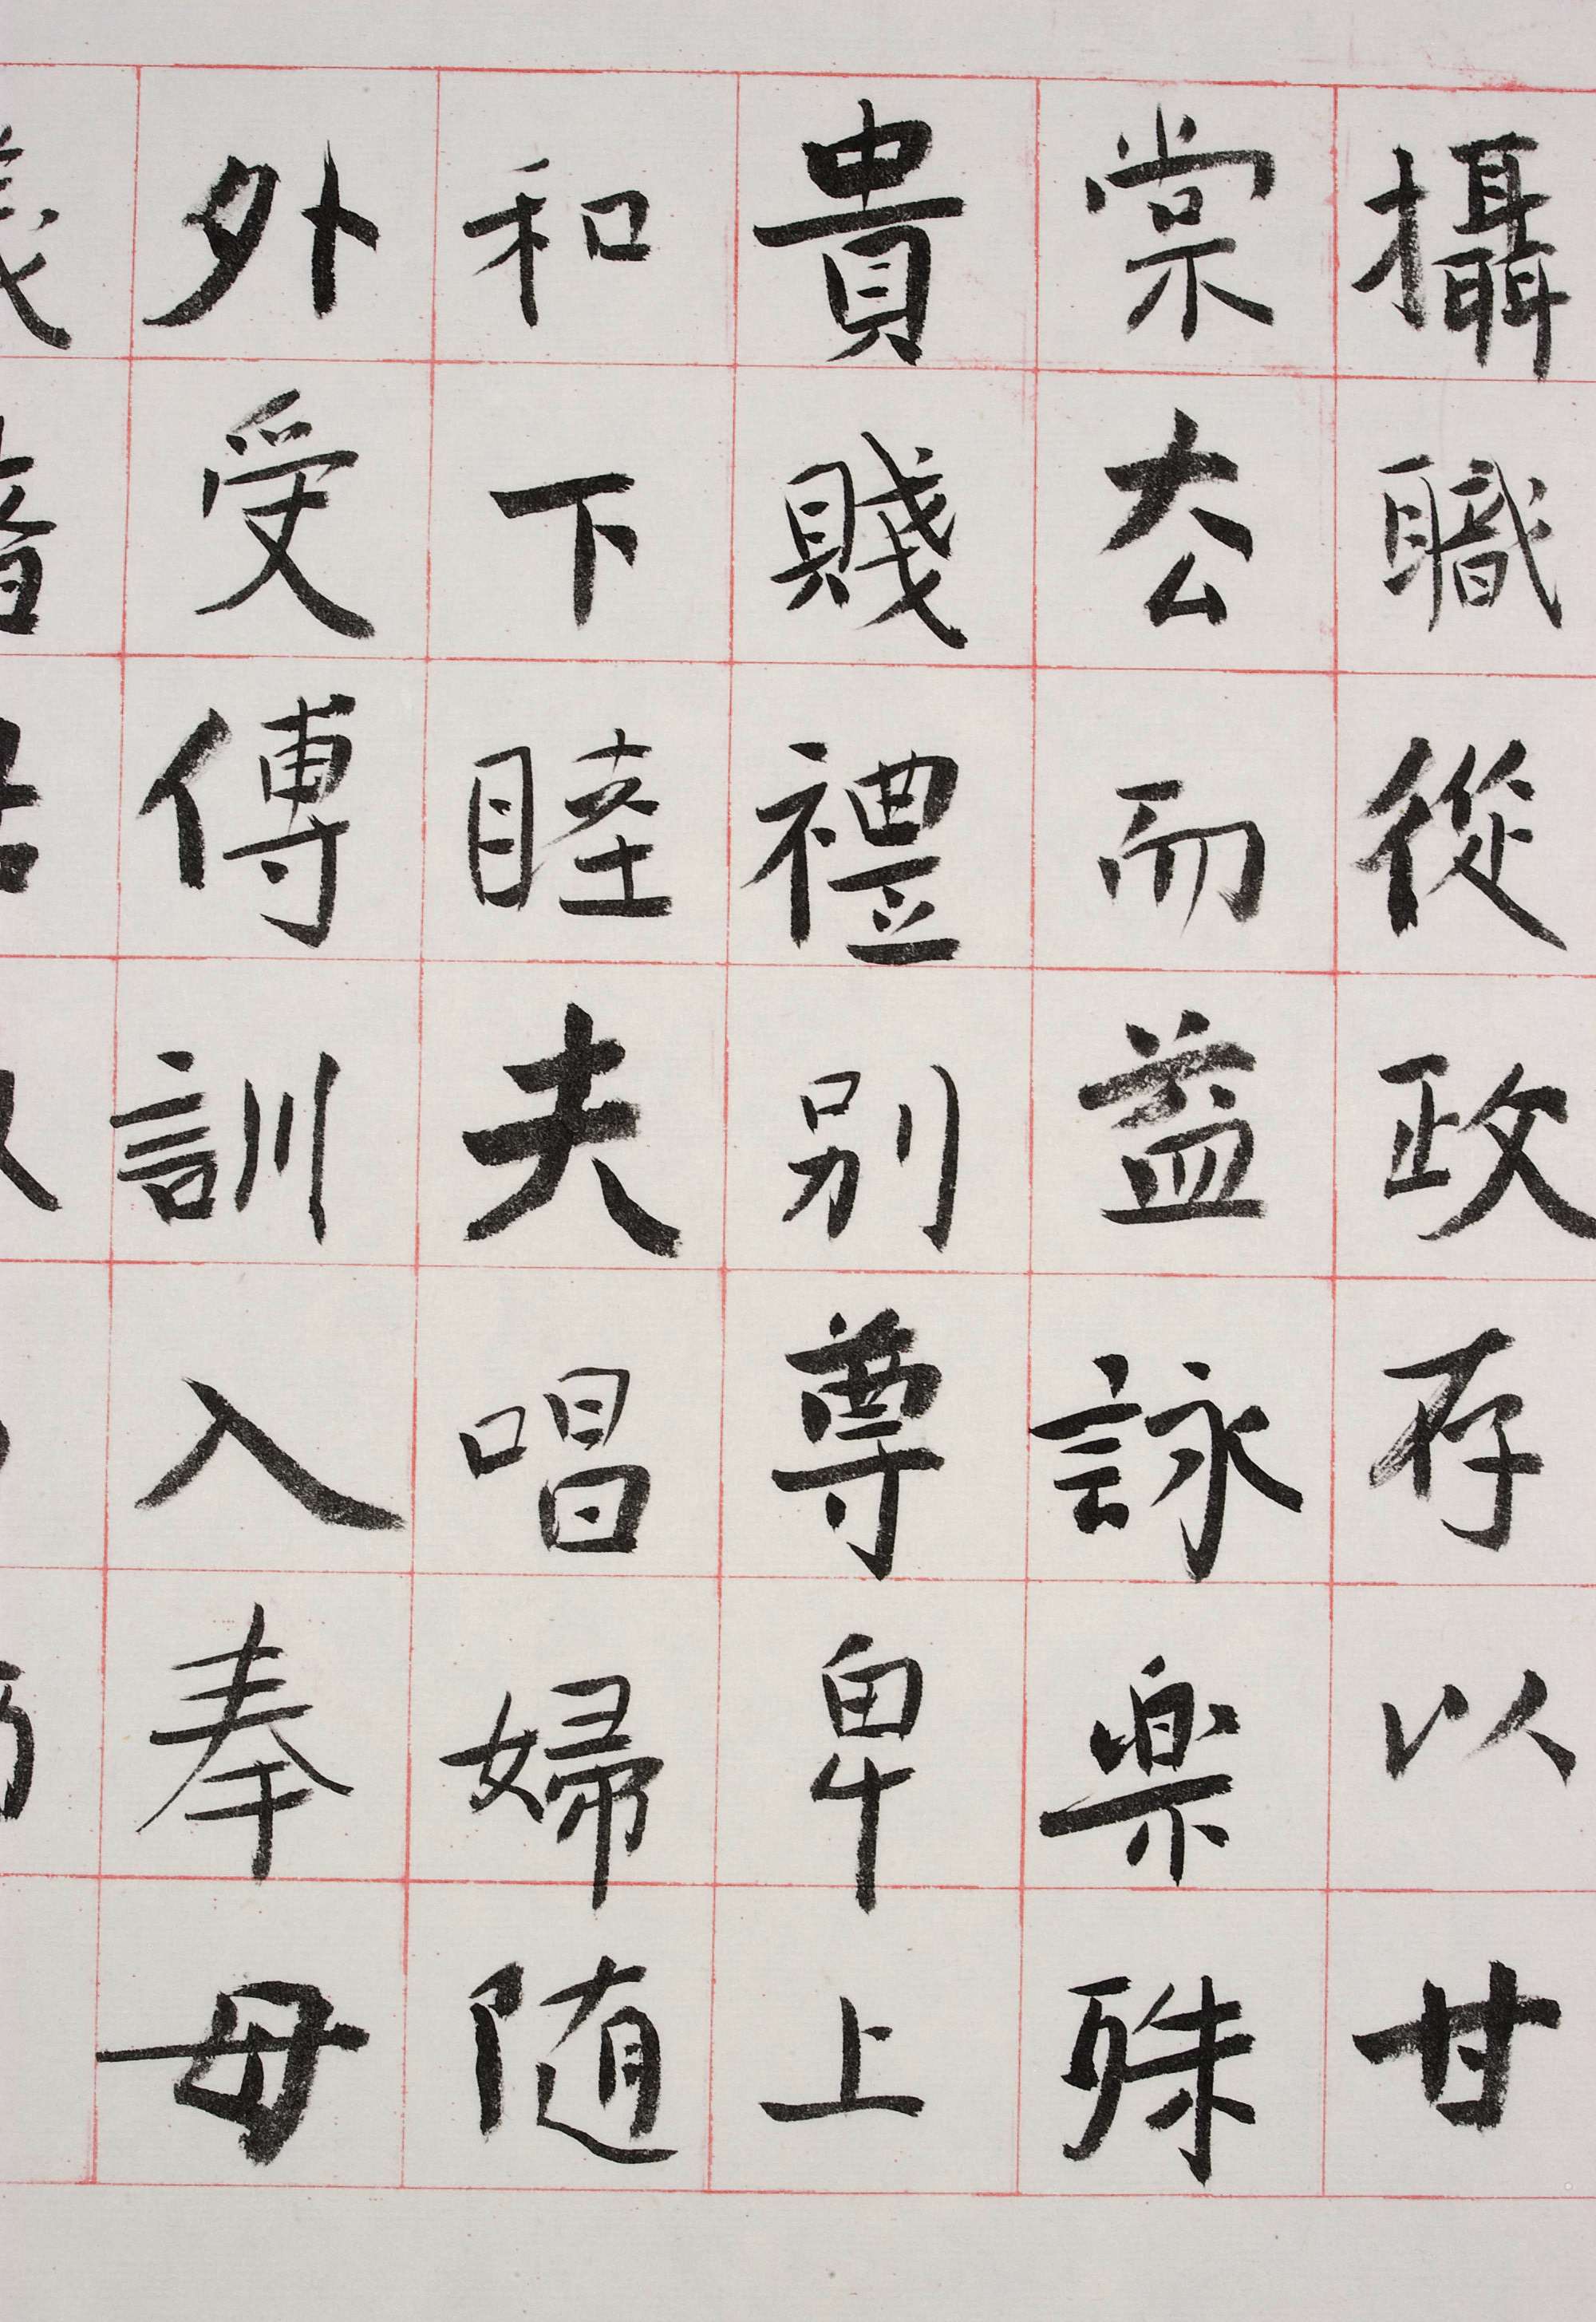 攝職從政存以甘
棠去而益詠樂殊
貴賤禮別尊卑上
和下睦夫唱婦随
外受傅訓入奉母